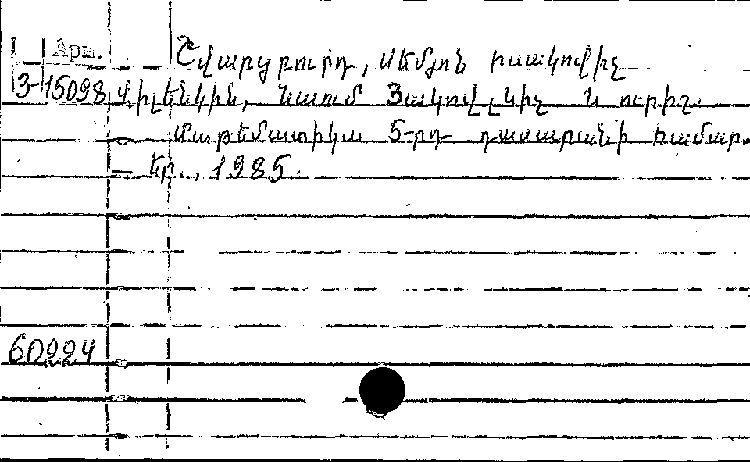 Արա.
Շվարցբուրդ, Սեմյոն Իսակովիչ
3-15098 Վիլենկին, Նաում Յակովլևիչ և ուրիշ.
Մաթեմատիկա 5-րդ դասարանի համար.
— Եր., 1985.
60224